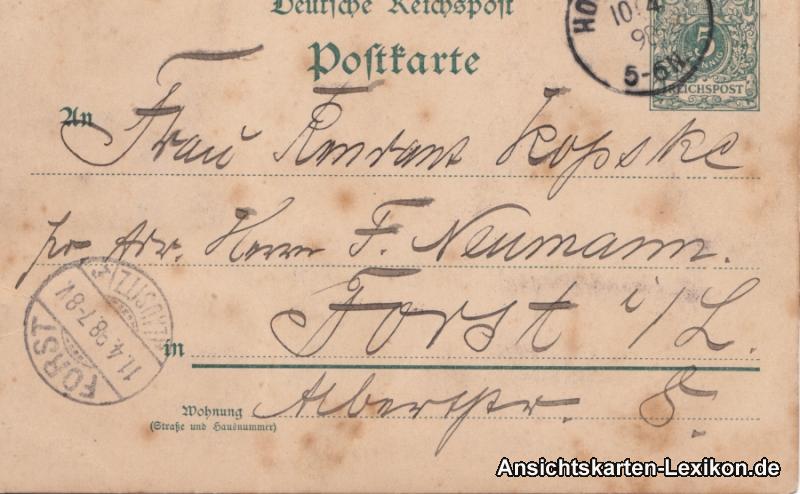 Deutsche Reichspost
Postkarte
HO
10.4
98
5-6N.
5
REICHSPOST
An Frau Rendant Kopske
pr. Adr. Herrn F. Neumann.
in Forst i/L.
Wohnung Albertstr. 8.
(Straße und Hausnummer)
FORST
11.4.98.7-8V.
(LAUSITZ)
Ansichtskarten-Lexikon.de